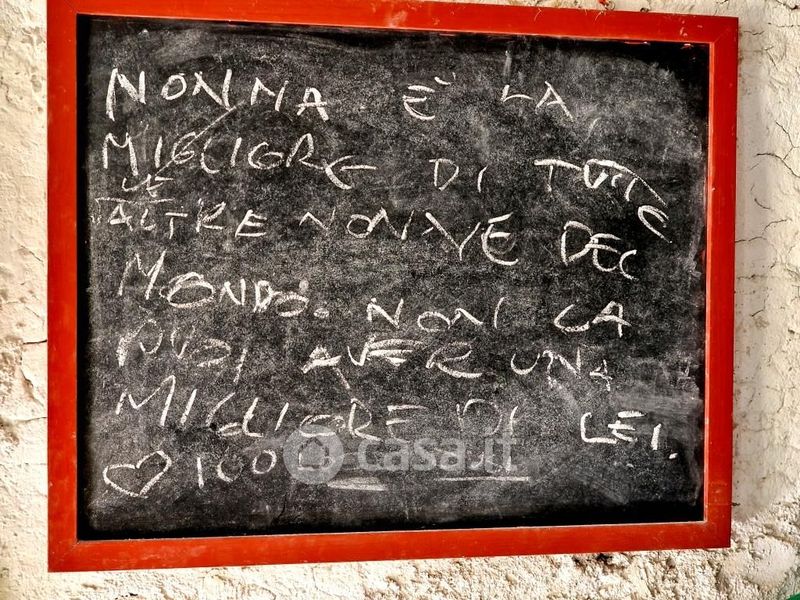 NONNA È LA
MIGLIORE DI TUTTE
LE
ALTRE NONNE DEL
MONDO. NON LA
PUOI AVER UNA
MIGLIORE DI LEI.
♡ 100
casa.it